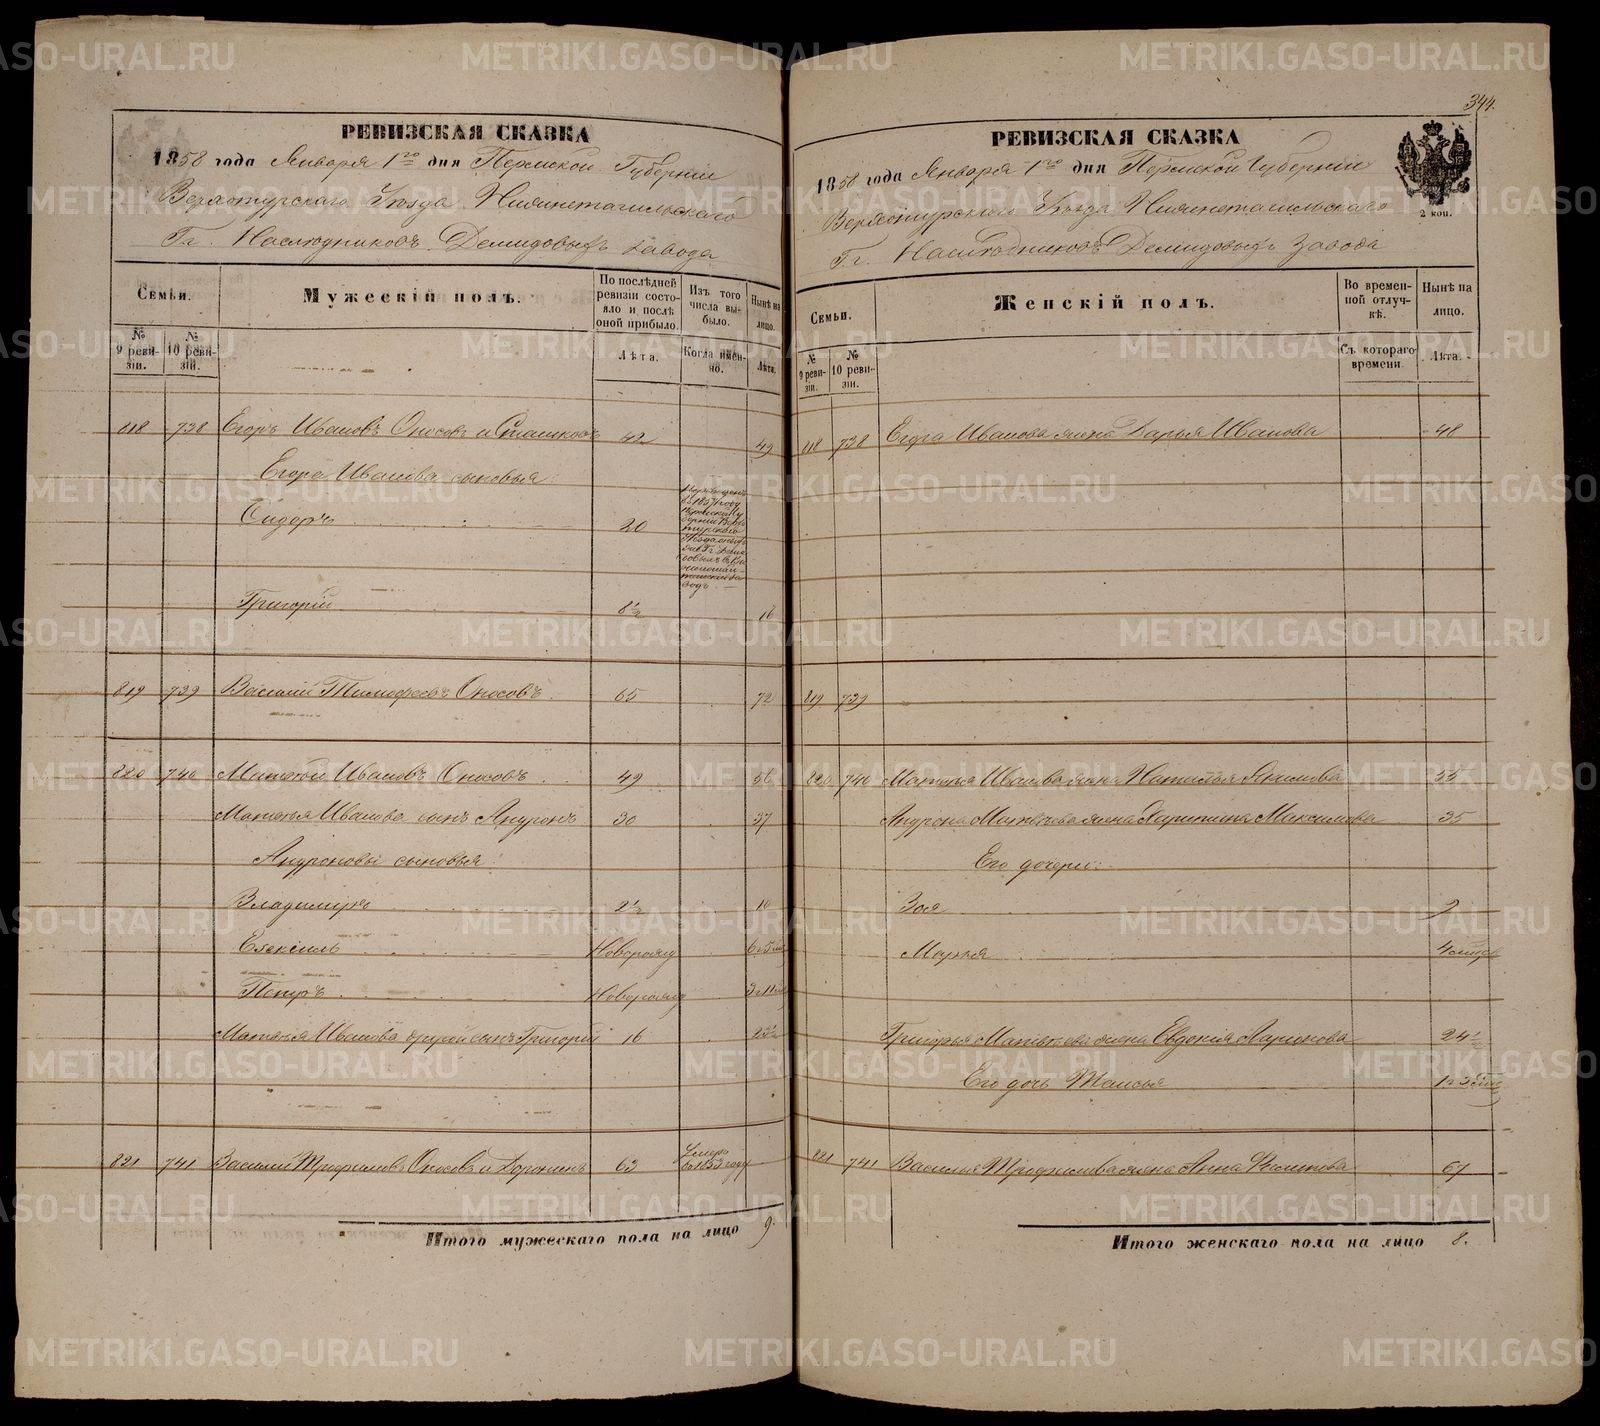 344.
РЕВИЗСКАЯ СКАЗКА
1858 года Января 1го дня Пермской Губернии
Верхотурскаго Уѣзда Нижнетагильскаго
Гг. Наслѣдниковъ Демидовыхъ завода
Семьи.
Мужескій полъ.
По послѣдней ревизіи состояло и послѣ оной прибыло.
Изъ того числа выбыло.
Нынѣ на лицо.
№ 9 ревизіи.
№ 10 ревизіи.
Лѣта.
Когда именно.
Лѣта.
818 738 Егоръ Ивановъ Опосовъ и Сташковъ 42 49
Егора Иванова сыновья:
Сидоръ 20
Григорій 8½ 16
819 739 Василій Тимофеевъ Опосовъ 65 72
820 740 Матвѣй Ивановъ Опосовъ 49 56
Матвѣя Иванова сынъ Андронъ 30 37
Андроновы сыновья:
Владимиръ 2½ 10
Езекіиль Новорожд
Петръ Новорожд
Матвѣя Иванова другой сынъ Григорій 16 23½
821 741 Василій Трофимовъ Опосовъ и Доронинъ 63 Умеръ въ 1853 году
Итого мужескаго пола на лицо 9.
РЕВИЗСКАЯ СКАЗКА
1858 года Января 1го дня Пермской Губерніи
Верхотурскаго Уѣзда Нижнетагильскаго
Гг. Наслѣдниковъ Демидовыхъ Завода
2 коп.
Семьи.
Женскій полъ.
Во временной отлучкѣ.
Нынѣ на лицо.
№ 9 ревизіи.
№ 10 ревизіи.
Съ котораго времени.
Лѣта.
818 738 Егора Иванова жена Дарья Иванова 48
819 739
820 740 Матвѣя Иванова жена Наталья Якимова 55
Андрона Матвѣева жена Харитина Максимова 35
Его дочери:
Зоя 9
Марья
Григорья Матвѣева жена Евдокія Ларіонова 24½
Его дочь Таисья
821 741 Василья Трофимова жена Анна 67
Итого женскаго пола на лицо 8.
METRIKI.GASO-URAL.RU